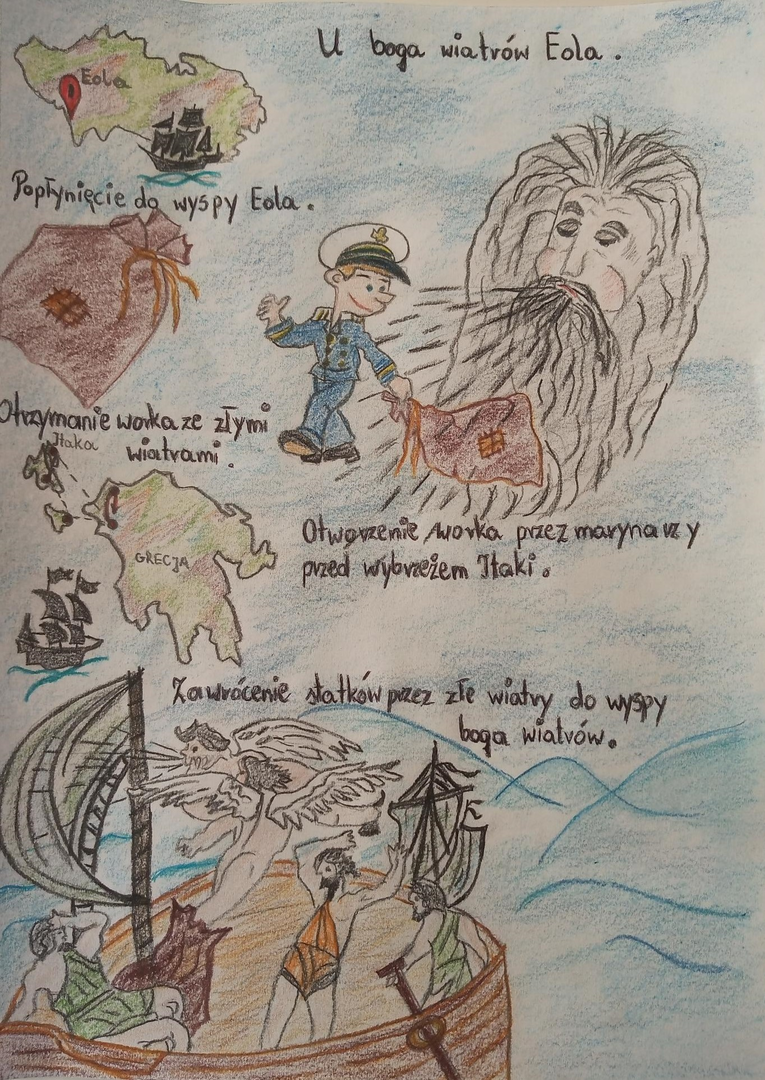 U boga wiatrów Eola.
Eola
Popłynięcie do wyspy Eola.
Otrzymanie worka ze złymi
wiatrami.
Itaka
GRECJA
Otworzenie worka przez marynarzy
przed wybrzeżem Itaki.
Zawrócenie statków przez złe wiatry do wyspy
boga wiatrów.